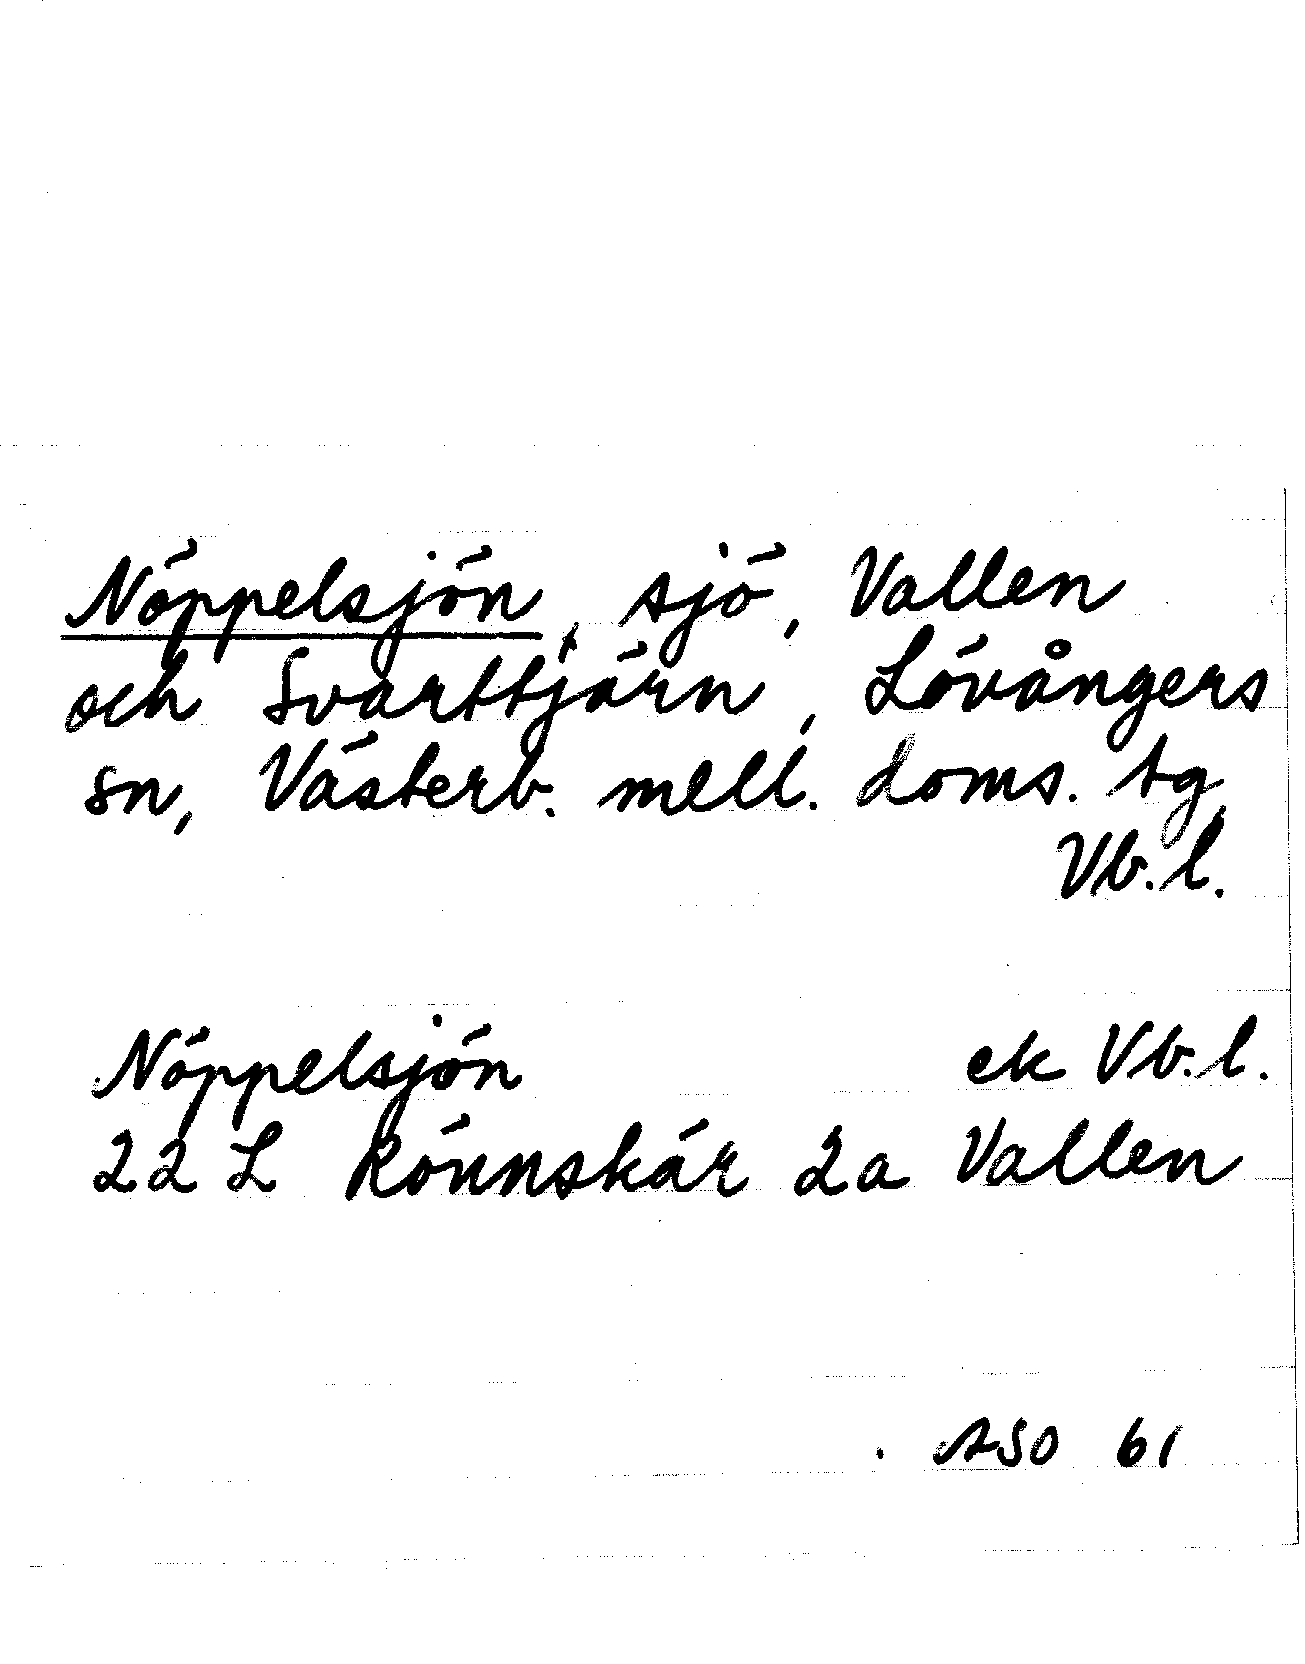 Nöppelsjön, sjö, Vallen
och Svarttjärn, Lövångers
sn, Västerb. mell. doms. tg
Vb. l.
Nöppelsjön ek Vb. l.
22 L Rönnskär 2a Vallen
ASO 61